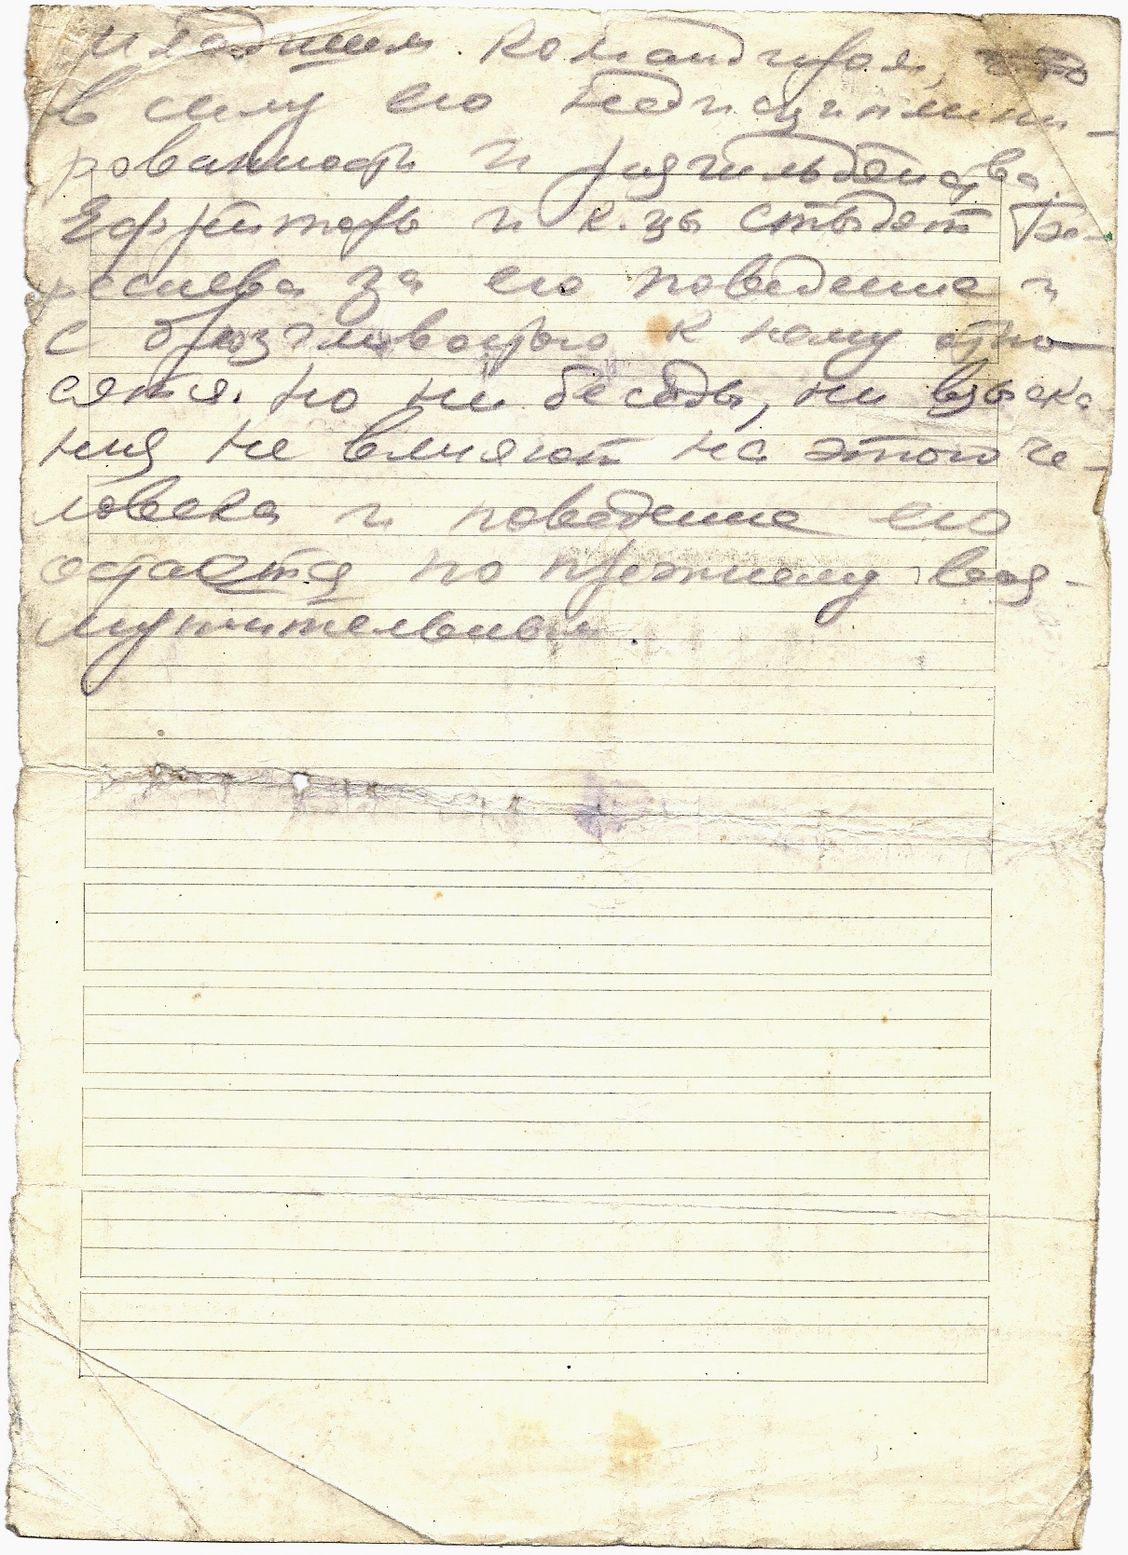 младшим командиром,
в силу его недисциплини-
рованности и
Ефрейторы и к.цы стыдят Бо-
за его поведение и
с брюзгливостью к нему отно-
сятся. но ни беседы, ни взыска
ния не влияют на этого че-
ловека и поведение его
остается по прежнему воз-
мутительным.